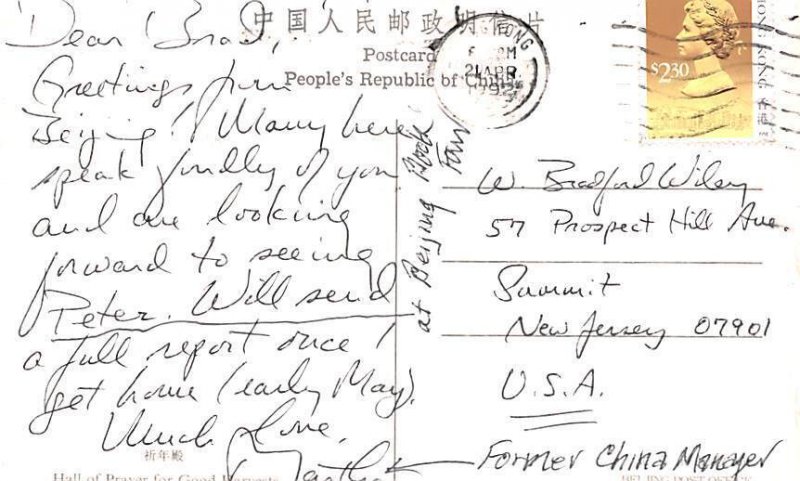 中国人民邮政明信片
Postcard
People's Republic of China
HONG KONG 香港
$2.30
KONG
PM
21 APR
Dear Brad,
Greetings from
Beijing! Many here
speak fondly of you
and are looking
forward to seeing
Peter. Will send
a full report once I
get home (early May).
Much love,
at Beijing Book
Fair
W. Bradford Wiley
57 Prospect Hill Ave.
Summit
New Jersey 07901
U.S.A.
Former China Manager
祈年殿
Hall of Prayer for Good Harvests
BEIJING POST OFFICE